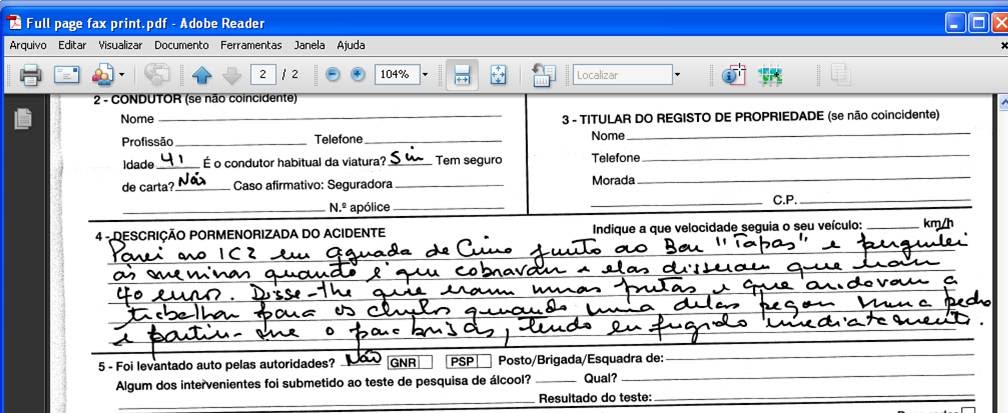 Full page fax print.pdf - Adobe Reader
Arquivo Editar Visualizar Documento Ferramentas Janela Ajuda
2 / 2 104% Localizar
2 - CONDUTOR (se não coincidente)
Nome
Profissão Telefone
Idade 41 É o condutor habitual da viatura? Sim Tem seguro
de carta? Não Caso afirmativo: Seguradora
N.º apólice
3 - TITULAR DO REGISTO DE PROPRIEDADE (se não coincidente)
Nome
Telefone
Morada
C.P.
4 - DESCRIÇÃO PORMENORIZADA DO ACIDENTE Indique a que velocidade seguia o seu veículo: km/h
Parei no IC2 em aguada de Cima junto ao Bar "Tapas" e perguntei
às meninas quanto é que cobravam e elas disseram que eram
40 euros. Disse-lhe que eram umas putas e que andavam a
trabalhar para os chulos quando uma delas pegou numa pedra
e partiu-me o para brisas, tendo eu fugido imediatamente.
5 - Foi levantado auto pelas autoridades? Não GNR PSP Posto/Brigada/Esquadra de:
Algum dos intervenientes foi submetido ao teste de pesquisa de álcool? Qual?
Resultado do teste: